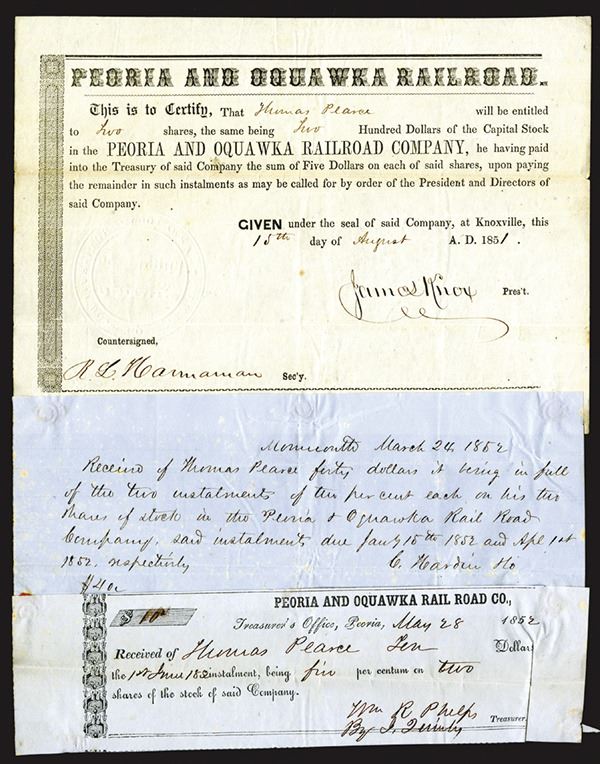 PEORIA AND OQUAWKA RAILROAD.
This is to Certify, That Thomas Pearce will be entitled
to Two shares, the same being Two Hundred Dollars of the Capital Stock
in the PEORIA AND OQUAWKA RAILROAD COMPANY, he having paid
into the Treasury of said Company the sum of Five Dollars on each of said shares, upon paying
the remainder in such instalments as may be called for by order of the President and Directors of
said Company.
GIVEN under the seal of said Company, at Knoxville, this
15th day of August A. D. 1851.
James Knox Pres't.
Countersigned,
R. L. Hannaman Sec'y.
Monmouth March 24, 1852
Receivd of Thomas Pearce forty dollars it being in full
of the two instalments of ten per cent each on his two
shares of stock in the Peoria & Oquawka Rail Road
Company, said instalments due Jany 15th 1852 and Apl 1st
1852, respectively
C. Hardin
$40
PEORIA AND OQUAWKA RAIL ROAD CO.,
$10
Treasurer's Office, Peoria, May 28 1852
Received of Thomas Pearce Ten Dollar
the 1st June 1852 instalment, being five per centum on two
shares of the stock of said Company.
Wm R Phelps Treasurer
By J.